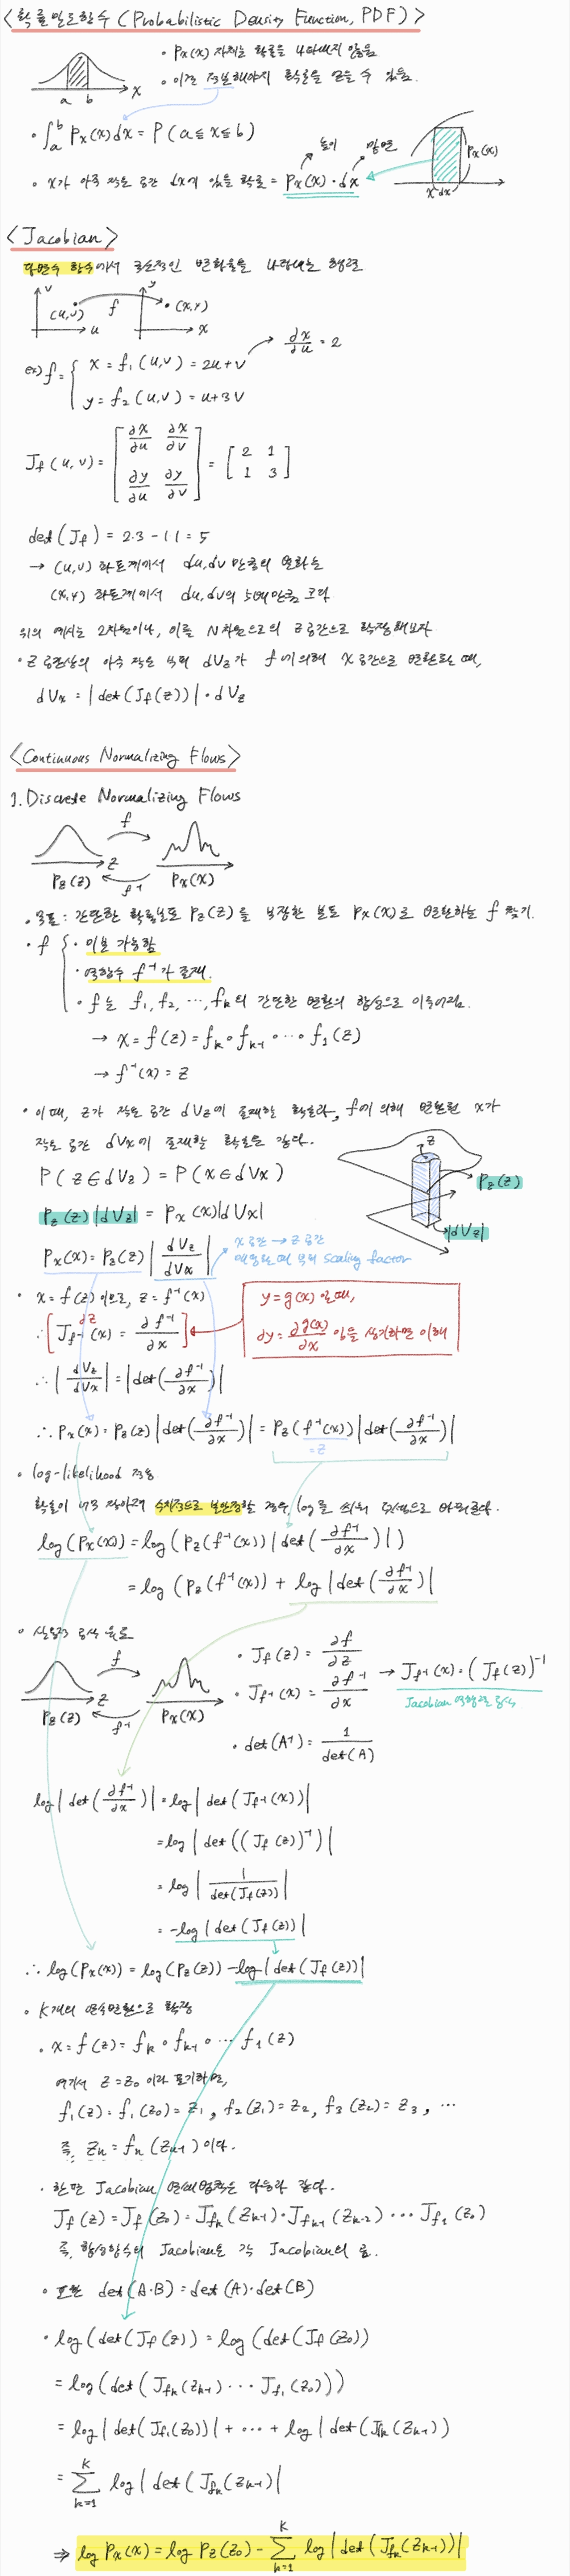 <확률밀도함수 (Probabilistic Density Function, PDF)>
• Px(x) 자체는 확률을 나타내지 않음
• 이걸 적분해야지 확률을 얻을 수 있음.
a b x
• ∫ₐᵇ Px(x)dx = P(a≤x≤b)
높이 밑변
• x가 아주 작은 공간 dx에 있을 확률 = Px(x)·dx
Px(x)
x dx
<Jacobian>
다변수 함수에서 국소적인 변화율을 나타내는 행렬
v (u,v) u f y •(x,y) x
ex) f = { x = f₁(u,v) = 2u+v → ∂x/∂u = 2
y = f₂(u,v) = u+3v
J_f(u,v) = [∂x/∂u ∂x/∂v ; ∂y/∂u ∂y/∂v] = [2 1 ; 1 3]
det(J_f) = 2·3 - 1·1 = 5
→ (u,v) 좌표계에서 du,dv 만큼의 변화는
(x,y) 좌표계에서 du,dv의 5배만큼 크다
위의 예시는 2차원이나, 이를 N차원으로의 z공간으로 확장해보자.
• z 공간상의 아주 작은 부피 dVz가 f에 의해 x 공간으로 변환될 때,
dVx = |det(J_f(z))|·dVz
<Continuous Normalizing Flows>
1. Discrete Normalizing Flows
f
z
Pz(z) f⁻¹ Px(x)
• 목표: 간단한 확률분포 Pz(z)를 복잡한 분포 Px(x)로 변환하는 f 찾기.
• f { • 미분 가능함
• 역함수 f⁻¹가 존재.
• f는 f₁, f₂, ⋯, f_k의 간단한 변환의 합성으로 이루어짐.
→ x = f(z) = f_k ∘ f_{k-1} ∘ ⋯ ∘ f₁(z)
→ f⁻¹(x) = z
• 이때, z가 작은 공간 dVz에 존재할 확률과, f에 의해 변환된 x가
작은 공간 dVx에 존재할 확률은 같다.
P(z∈dVz) = P(x∈dVx)
z
Pz(z)
|dVz|
Pz(z)|dVz| = Px(x)|dVx|
Px(x) = Pz(z)|dVz/dVx|
x공간 → z공간
변환될 때 부피 scaling factor
• x = f(z) 이므로, z = f⁻¹(x)
∴ [J_{f⁻¹}(x) = ∂f⁻¹/∂x] ∂z
y = g(x) 일 때,
∂y = ∂g(x)/∂x 임을 생각하면 이해
∴ |dVz/dVx| = |det(∂f⁻¹/∂x)|
∴ Px(x) = Pz(z)|det(∂f⁻¹/∂x)| = Pz(f⁻¹(x))|det(∂f⁻¹/∂x)|
=z
• log-likelihood 적용
확률이 너무 작아져 수치적으로 불안정할 경우, log를 씌워 덧셈으로 바꿔준다.
log(Px(x)) = log(Pz(f⁻¹(x))|det(∂f⁻¹/∂x)|)
= log(Pz(f⁻¹(x)) + log|det(∂f⁻¹/∂x)|
• 실용적 공식 유도
f
z
Pz(z) f⁻¹ Px(x)
• J_f(z) = ∂f/∂z
• J_{f⁻¹}(x) = ∂f⁻¹/∂x → J_{f⁻¹}(x) = (J_f(z))⁻¹
Jacobian 역행렬 공식
• det(A⁻¹) = 1/det(A)
log|det(∂f⁻¹/∂x)| = log|det(J_{f⁻¹}(x))|
= log|det((J_f(z))⁻¹)|
= log|1/det(J_f(z))|
= -log|det(J_f(z))|
∴ log(Px(x)) = log(Pz(z)) - log|det(J_f(z))|
• K개의 연속변환으로 확장
• x = f(z) = f_k ∘ f_{k-1} ∘ ⋯ f₁(z)
여기서 z = z₀ 이라 표기하면,
f₁(z) = f₁(z₀) = z₁, f₂(z₁) = z₂, f₃(z₂) = z₃, ⋯
즉, z_k = f_k(z_{k-1}) 이다.
• 한편 Jacobian 연쇄법칙은 다음과 같다.
J_f(z) = J_f(z₀) = J_{f_k}(z_{k-1})·J_{f_{k-1}}(z_{k-2}) ⋯ J_{f₁}(z₀)
즉, 합성함수의 Jacobian은 각 Jacobian의 곱.
• 또한 det(A·B) = det(A)·det(B)
• log(det(J_f(z)) = log(det(J_f(z₀))
= log(det(J_{f_k}(z_{k-1}) ⋯ J_{f₁}(z₀)))
= log|det(J_{f₁}(z₀))| + ⋯ + log|det(J_{f_k}(z_{k-1}))
= Σ_{k=1}^{K} log|det(J_{f_k}(z_{k-1})|
⇒ log Px(x) = log Pz(z₀) - Σ_{k=1}^{K} log|det(J_{f_k}(z_{k-1}))|